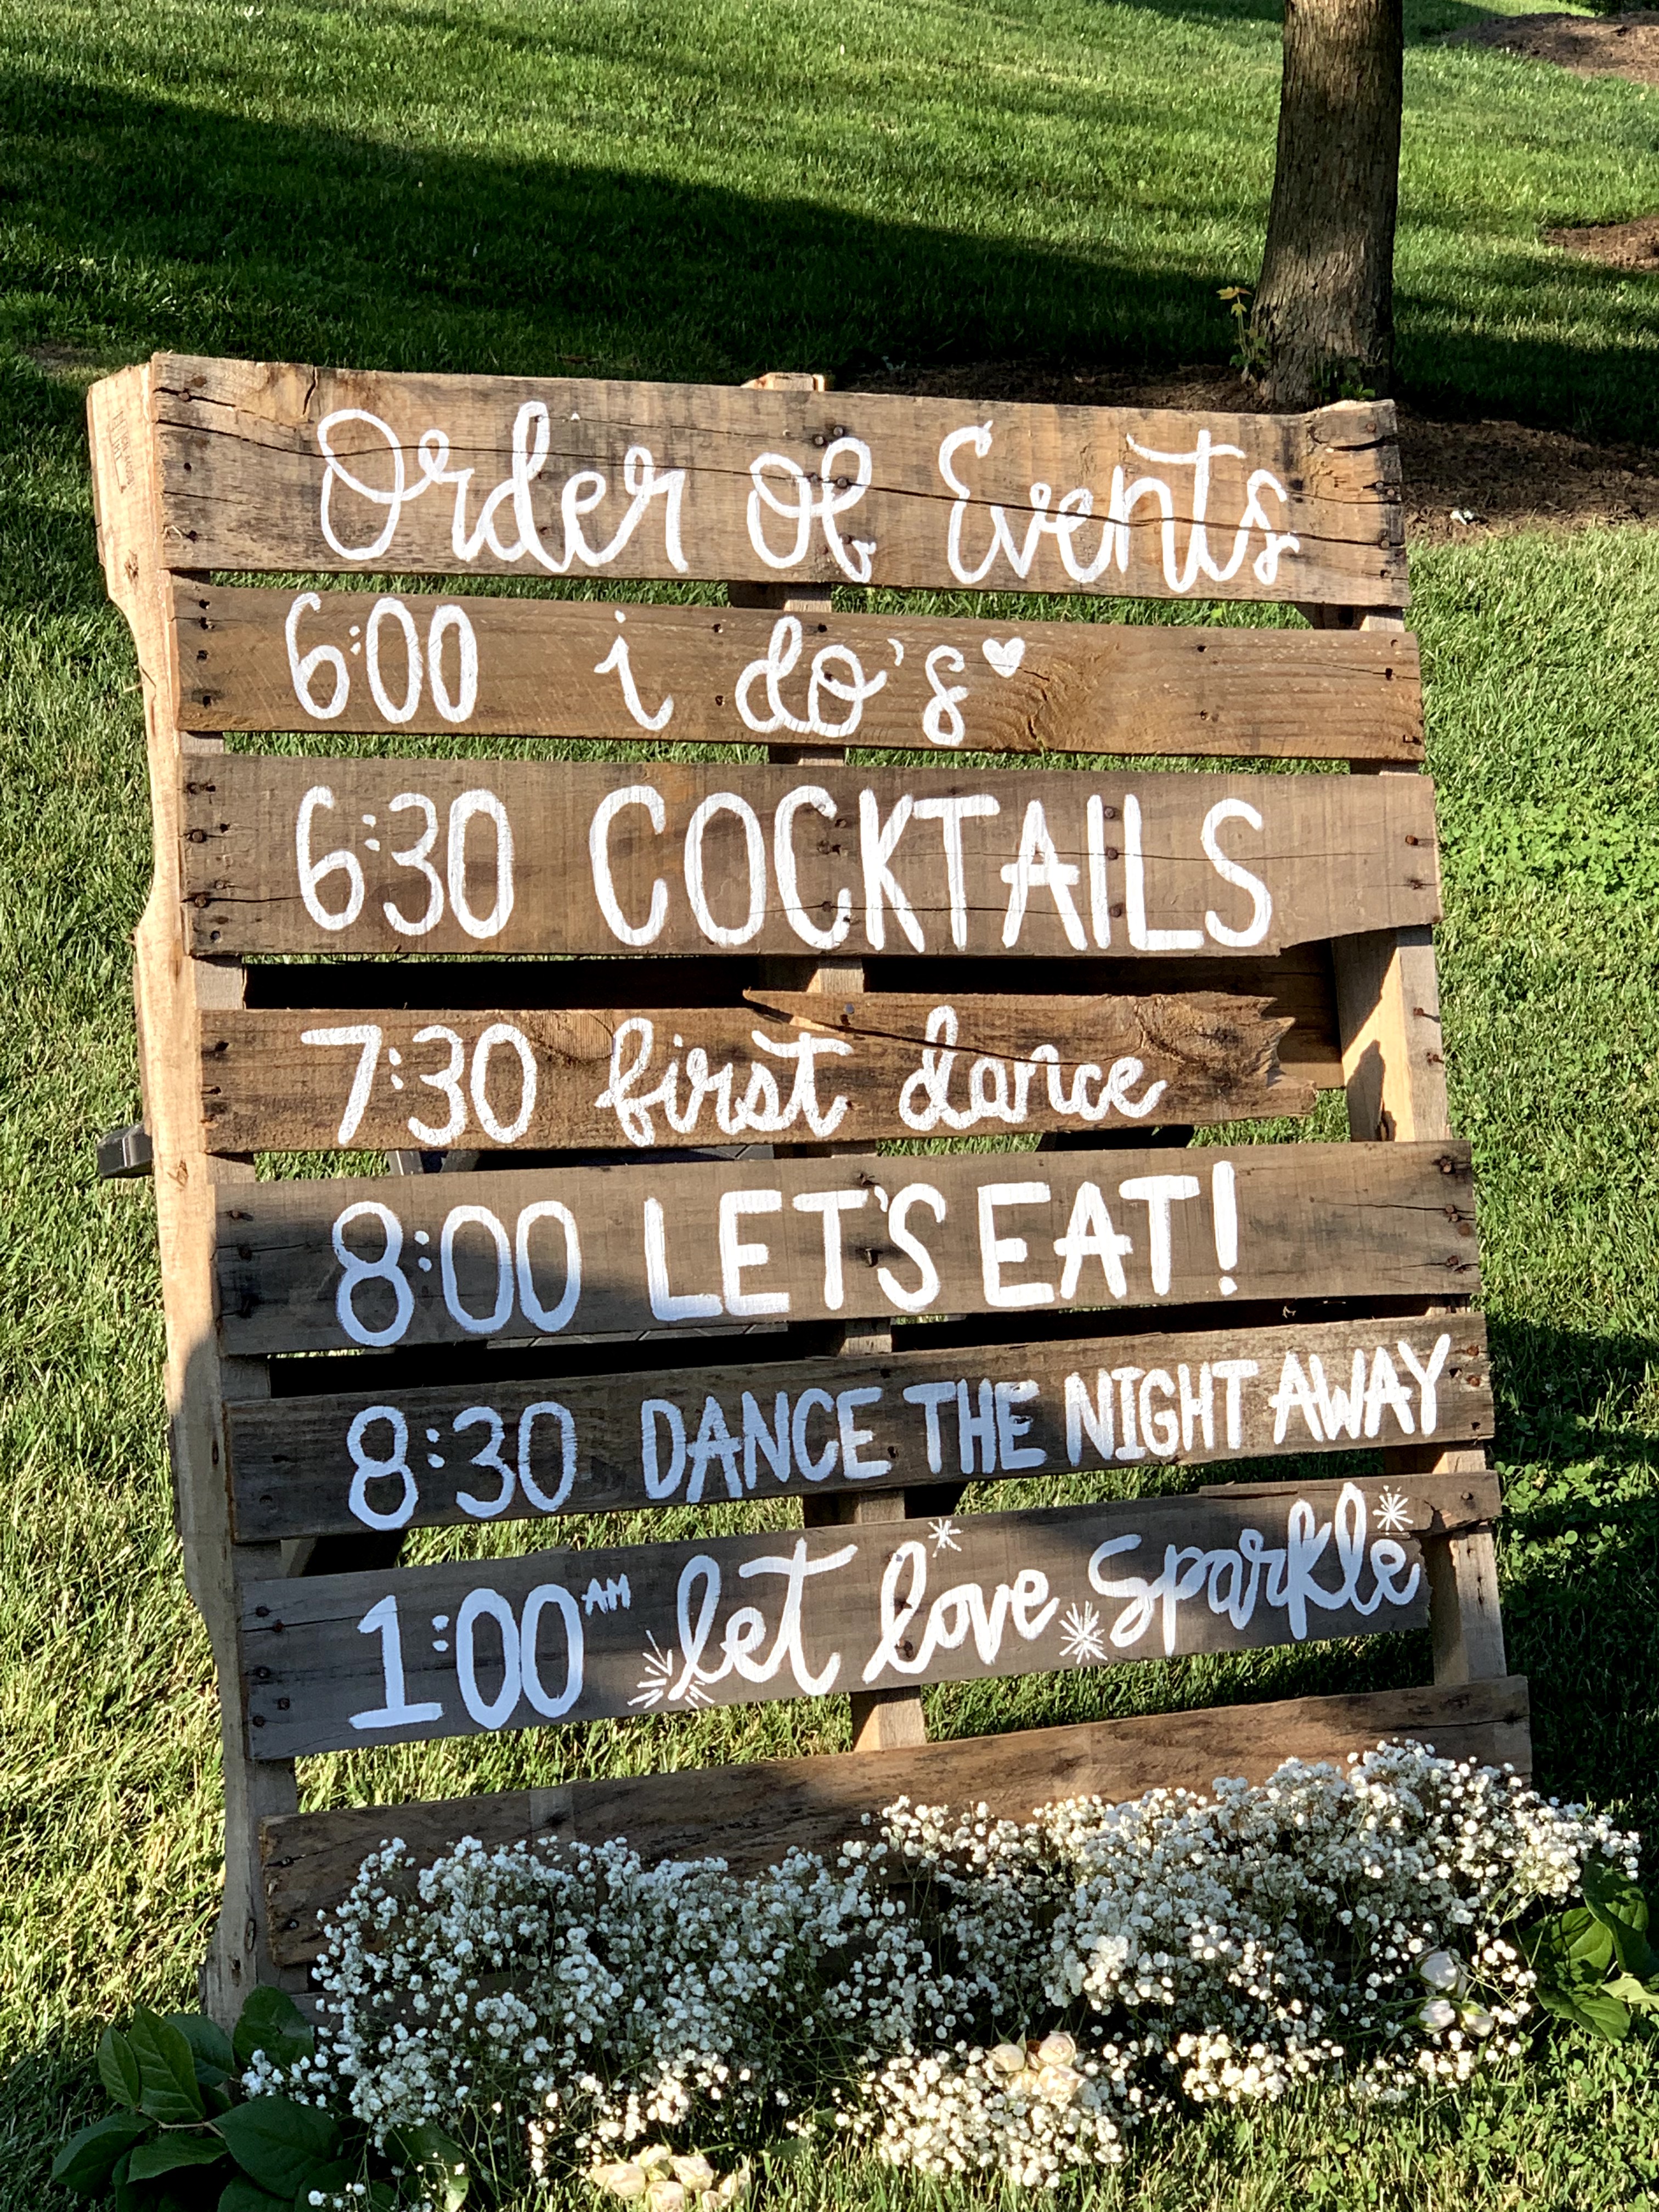 Order of Events
6:00 i do's♥
6:30 COCKTAILS
7:30 first dance
8:00 LET'S EAT!
8:30 DANCE THE NIGHT AWAY
1:00 AM let love sparkle